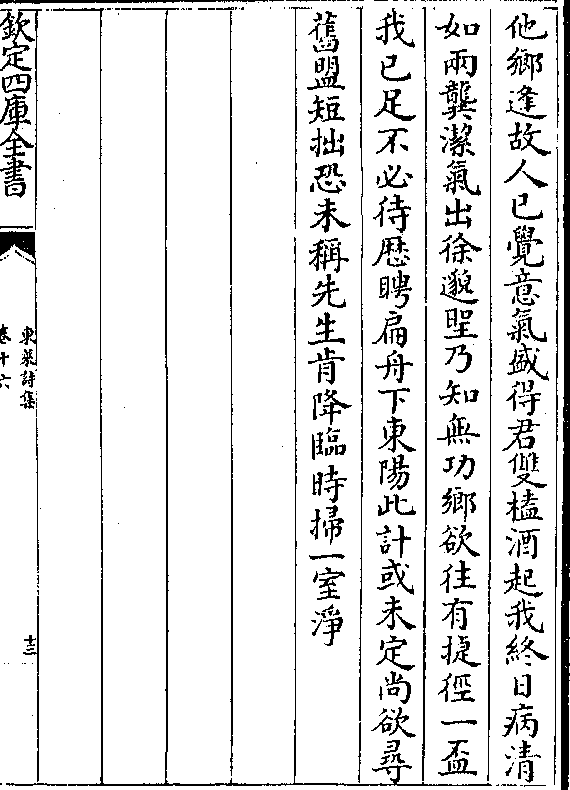 他鄉逢故人已覺意氣盛得君雙榼酒起我終日病清
如兩龔潔氣出徐邈聖乃知無功鄉欲往有捷徑一盃
我已足不必待歴聘扁舟下東陽此計或未定尚欲尋
舊盟短拙恐未稱先生肯降臨時掃一室淨
欽定四庫全書
東萊詩集
卷十六
十三